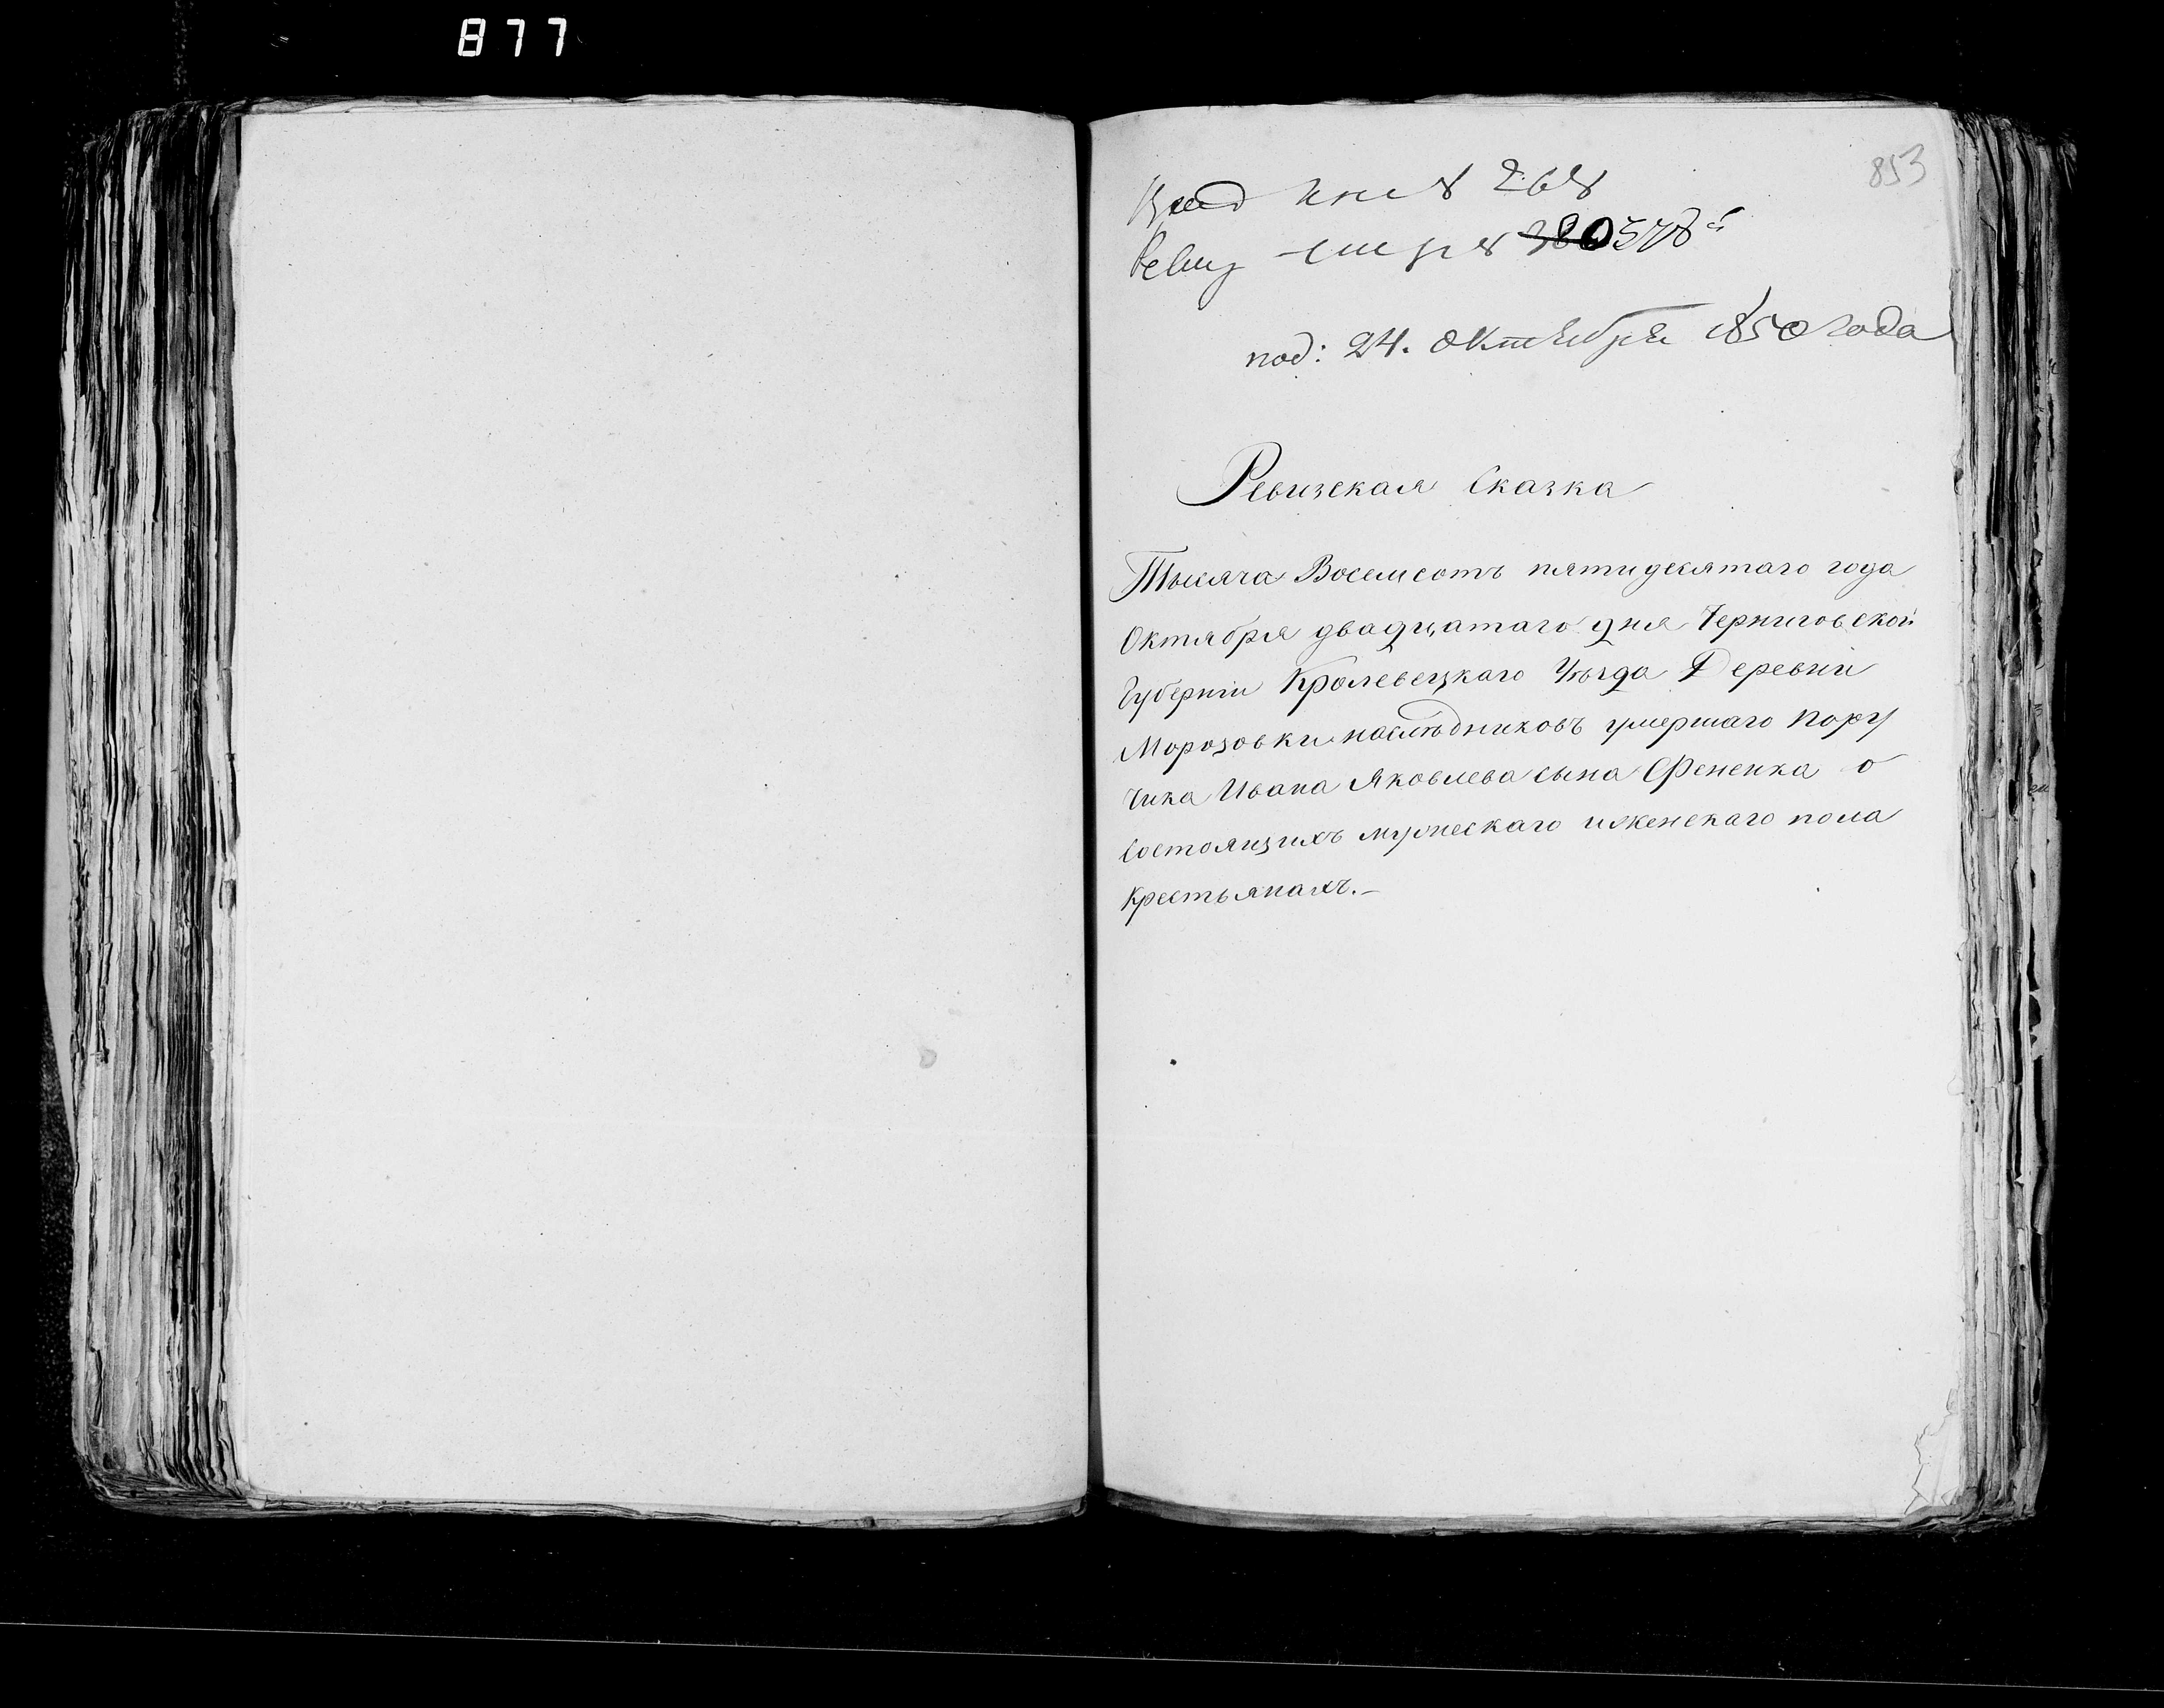 877
853
под: 24. Октября 1850 года
Ревизская Сказка
Тысяча Восемсотъ пятидесятаго года
Октября двадцатаго дня Черниговской
Губернiи Кролевецкаго Уѣзда Деревни
Морозовки наслѣдниковъ умершаго Пору
чика Ивана Яковлева сына Фененка о
состоящихъ мужескаго и женскаго пола
Крестьянахъ.–